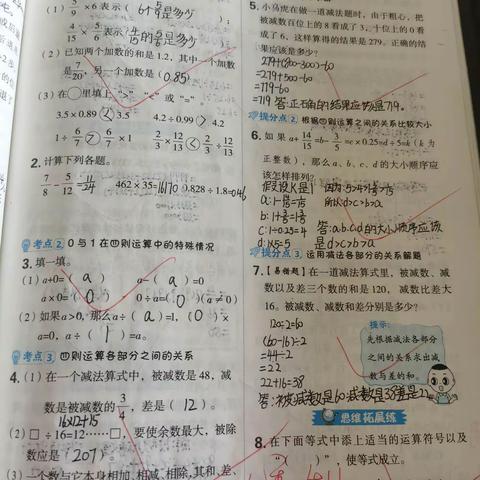 (1) 5/9×6表示(6个5/9是多少)
4/15×5/6表示(4/15的5/6是多少)
(2) 已知两个加数的和是1.2,其中一个加数
是7/20,另一个加数是(0.85)
(3) 在○里填上“>”“<”或“=”
3.5×0.89<3.5 4.2÷0.99>4.2
1÷6/7>6/7×1 2/3×12/13<2/3÷12/13
2. 计算下列各题。
7/8-5/12=11/24 462×35=16170 0.828÷1.8=0.46
考点2 0与1在四则运算中的特殊情况
3. 填一填。
(1) a+0=(a) a-(a)=0
a×0=(0) 0÷a=(0)(a≠0)
(2) 如果a>0,那么a÷(a)=1,(0)×
a=0,a÷(1)=a。
考点3 四则运算各部分之间的关系
4. (1) 在一个减法算式中,被减数是48,减
数是被减数的3/4,差是(12)。
16×12+15
(2) □÷16=12……□,要使余数最大,被除
数应是(207)。
(3) 一个数与它本身相加、相减、相除,其和、差、
5. 小马虎在做一道减法题时,由于粗心,把
被减数百位上的8看成了3,十位上的0看
成了6,这样算得的结果是279。正确的结
果应该是多少?
279+(800-300)-60
=279+500-60
=779-60
=719 答:正确的结果应该是719。
提分点2 根据四则运算之间的关系比较大小
6. 如果a+14/15=b-1/3=c×0.25=d÷5=k(k为
正整数),那么a、b、c、d的大小顺序应
该怎样排列?
答:a.b.c.d的大小顺序应该
是d>c>b>a
提分点3 运用减法各部分的关系解题
7. 【易错题】在一道减法算式里,被减数、减
数以及差三个数的和是120,减数比差大
16。被减数、减数和差分别是多少?
120÷2=60
(60-16)÷2
=44÷2
=22
22+16=38
提示:
先根据减法各部分
之间的关系求出减
数与差的和。
思维拓展练
8. 在下面等式中添上适当的运算符号以及
“( )”,使等式成立。